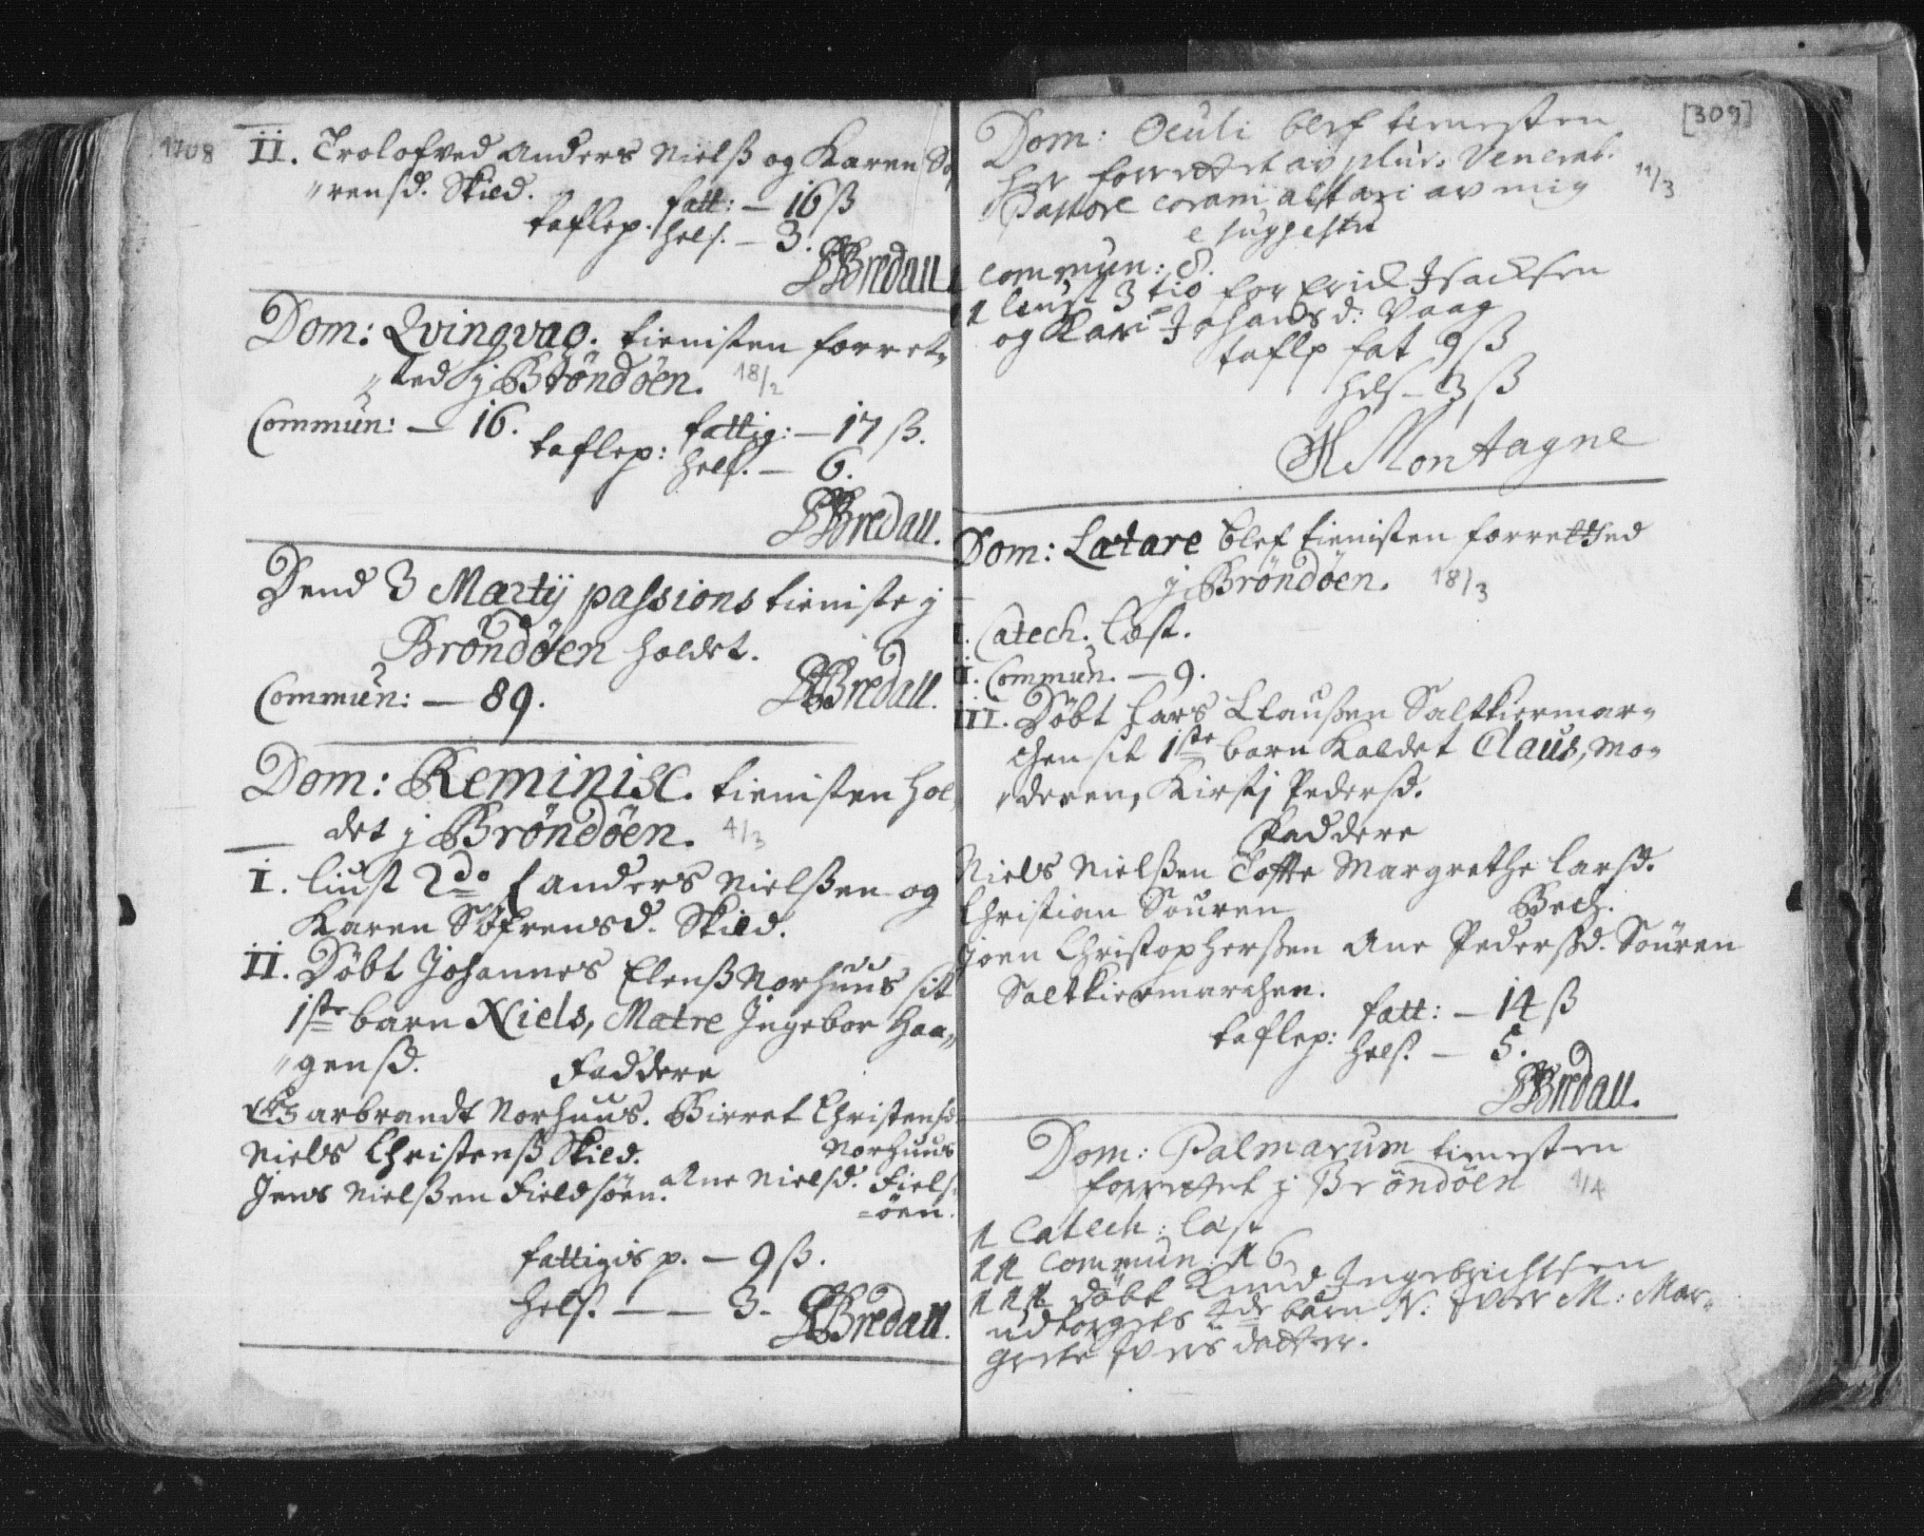 1708
II. Trolofved Anders Nielß og Karen Sø,,
,,rensd. Skild.
taflep. fatt: — 16 ß
hels. — 3.
Bredall
Dom: Qvinqvag. tienisten forret,,
,,ted j Bröndöen. 18/2
Commun: — 16.
taflep: fattig: — 17 ß.
hels. — 6.
Bredall.
Dend 3 Martij passions tieniste j
Bröndöen holdet.
Commun: — 89.
Bredall.
Dom: Reminisc. tienisten hol,,
det j Bröndöen. 4/3
I. liust 2do f Anders Nielßen og
Karen Söfrensd. Skild.
II. Döbt Johannes Elenß Norhuus sit
1ste barn Niels, Matre Jngebor Haa,,
,,gensd.
Faddere
Garbrandt Norhuus. Birret Christensd.
Niels Christenß Skild. Norhuus
Jens Nielßen Fieldsöen. Ane Nielsd. Fiels,
=öen.
fattigis p. — 9 ß.
hels. — — 3.
Bredall.
[309]
Dom: Oculi blef tienesten
her forrettet av plur. Venerab. 11/3
Pastore coram altari av mig
e suggestu
commun: 8.
liust 3tio for Erick Jsacksen
og Kari Johansd: Vaag
taflp fat 9 ß
hels — 3 ß
Montagne
Dom: Lætare blef tienisten forretted
j Bröndöen. 18/3
I. Catech. læst.
II. Commun. — 9.
III. Döbt Lars Claußen Saltkiermar,,
chen sit 1ste barn kaldet Claus, mo,,
,,deren, Kirstj Pedersd.
Faddere
Niels Nielßen Tofte Margrethe Larsd.
Christian Souren Bech.
Joen Christopherßen Ane Pederßd. Souren
Saltkiermarchen.
taflep: fatt: — 14 ß
hels. — 5.
Bredall.
Dom: Palmarum tienesten
forrettet j Bröndöen 1/4
1 Catech: læst
11 Commun: 16
111 Döbt Knud Ingebrichtsen
udtorgets 4de barn N: Iver M: Mar,,
grete Ivers datter.